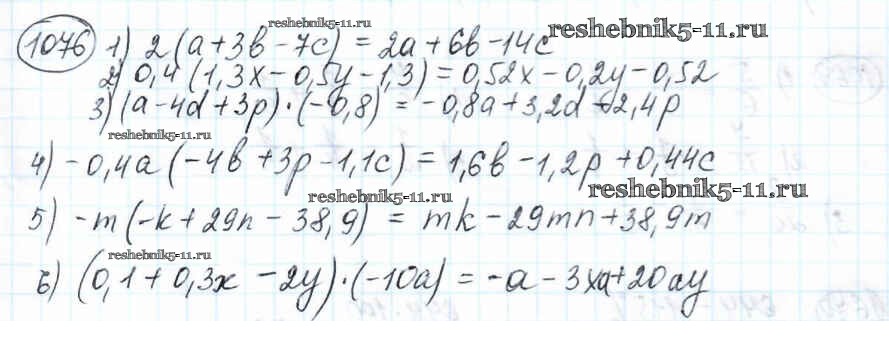 reshebnik5-11.ru
reshebnik5-11.ru
1076 1) 2(a+3b-7c) = 2a+6b-14c
2) 0,4(1,3x-0,5y-1,3) = 0,52x-0,2y-0,52
3) (a-4d+3p)·(-0,8) = -0,8a+3,2d-2,4p
reshebnik5-11.ru
4) -0,4a(-4b+3p-1,1c) = 1,6b-1,2p+0,44c
reshebnik5-11.ru
reshebnik5-11.ru
5) -m(-k+29n-38,9) = mk-29mn+38,9m
reshebnik5-11.ru
6) (0,1+0,3x-2y)·(-10a) = -a-3xa+20ay